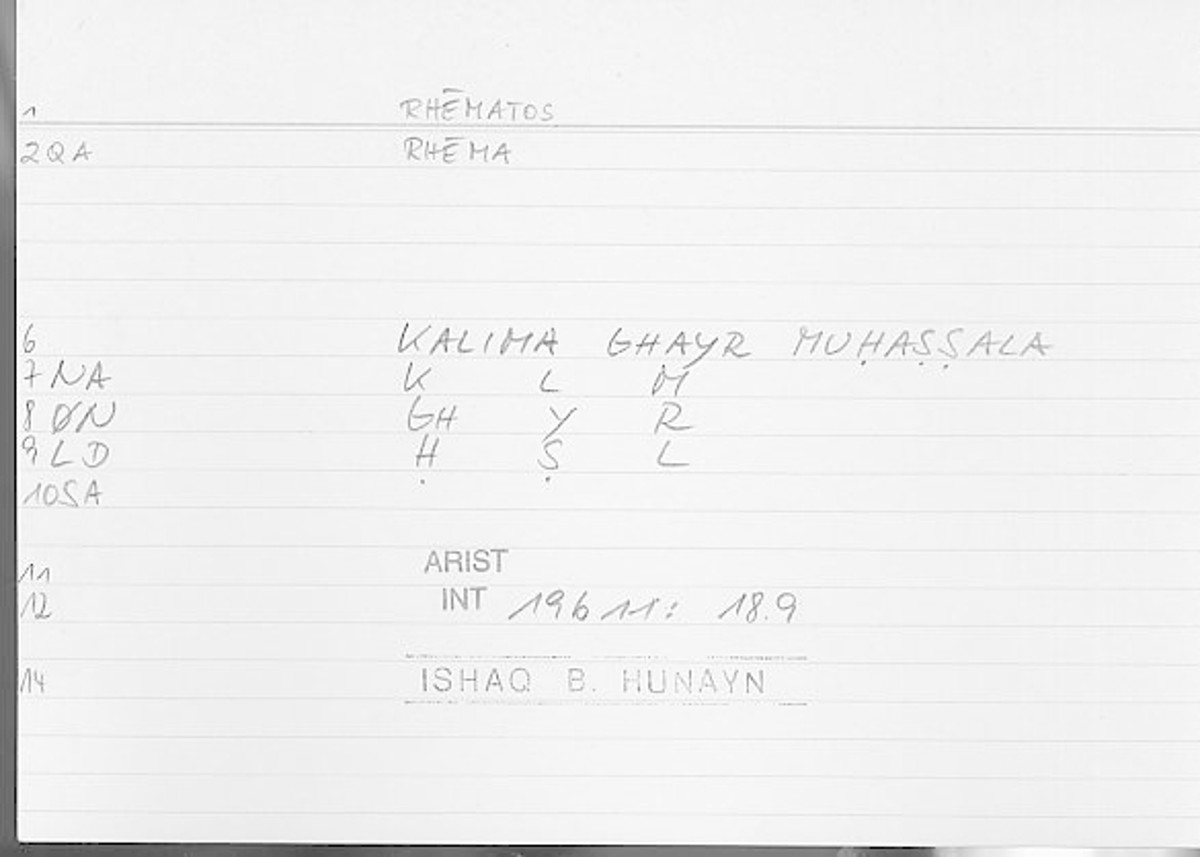 1 RHĒMATOS
2QA RHĒMA
6 KALIMA GHAYR MUḤAṢṢALA
7NA K L M
8ØN GH Y R
9LD Ḥ Ṣ L
10SA
11 ARIST
12 INT 19b11: 18.9
14 ISHAQ B. HUNAYN